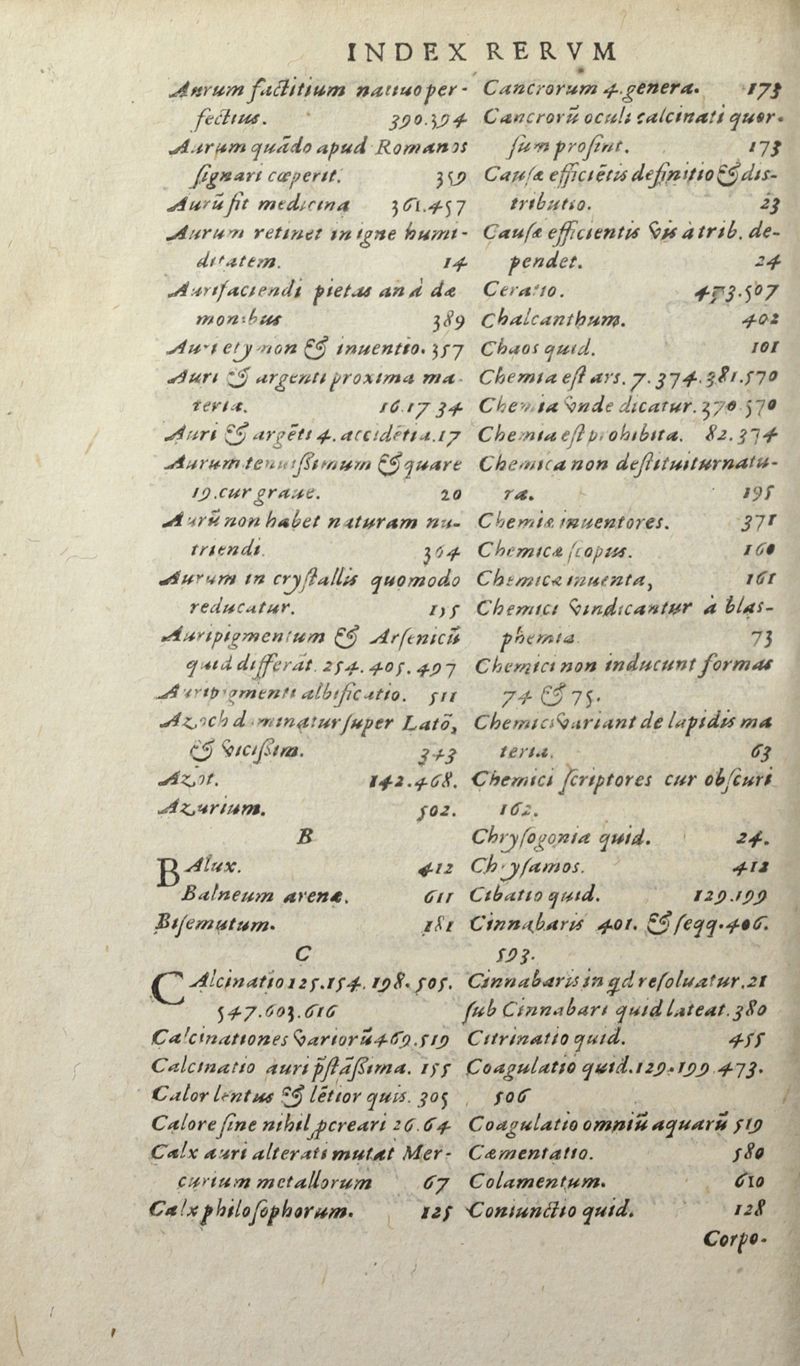 INDEX RERVM
Aurum factitium natiuo per-
fectius. 390.394
Aurum quādo apud Romanos
signari cœperit. 359
Aurū fit medicina 361.457
Aurum retinet in igne humi-
ditatem. 14
Aurifaciendi pietas an à dæ
monibus 389
Auri etymon & inuentio. 357
Auri & argenti proxima ma-
teria. 16.17 34
Auri & argēti 4. accidētia.17
Aurum tenuissimum & quare
19.cur graue. 20
Aurū non habet naturam nu-
triendi. 364
Aurum in crystallis quomodo
reducatur. 155
Auripigmentum & Arsenicū
quid differāt. 254. 405. 497
Auripigmenti albificatio. 511
Azoch dominatur super Latō,
& vicissim. 343
Azot. 142.468.
Azurium. 502.
B
BAlux. 412
Balneum arenæ. 611
Bisemutum. 181
C
CAlcinatio 125.154. 198. 505.
547.603.616
Calcinationes variorū 469.519
Calcinatio auri p̄stāssima. 155
Calor lentus & lētior quis. 305
Calore sine nihil ꝓcreari 26.64
Calx auri alterati mutat Mer-
curium metallorum 67
Calx philosophorum. 125
Cancrorum 4.genera. 173
Cancrorū oculi calcinati quor-
sum prosint. 173
Causæ efficiētis definitio & dis-
tributio. 23
Causæ efficientis vis à trib. de-
pendet. 24
Ceratio. 473.507
Chalcanthum. 402
Chaos quid. 101
Chemia est ars. 7. 374. 381.570
Chemia vnde dicatur. 370 570
Chemia est prohibita. 82.374
Chemica non destituitur natu-
ra. 195
Chemiæ inuentores. 371
Chemicæ scopus. 160
Chemicæ inuenta, 161
Chemici vindicantur à blas-
phemia 73
Chemici non inducunt formas
74 & 75.
Chemici variant de lapidis ma
teria. 63
Chemici scriptores cur obscuri
162.
Chrysogonia quid. 24.
Chrysamos. 412
Cibatio quid. 129.199
Cinnabaris 401. & seqq.406.
593.
Cinnabaris in qd resoluatur.21
sub Cinnabari quid lateat.380
Citrinatio quid. 455
Coagulatio quid.129.199 473.
506
Coagulatio omniū aquarū 519
Cæmentatio. 580
Colamentum. 610
Coniunctio quid. 128
Corpo-